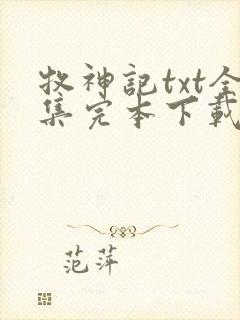 牧神記txt全
集完本下載
范萍